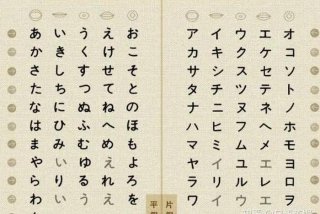 あかさたなはまやらわ
いきしちにひみいりい
うくすつぬふむゆるう
えけせてねへめえれえ
おこそとのほもよろを
平
片
アカサタナハマヤラワ
イキシチニヒミイリイ
ウクスツヌフムユルウ
エケセテネヘメエレエ
オコソトノホモヨロヲ